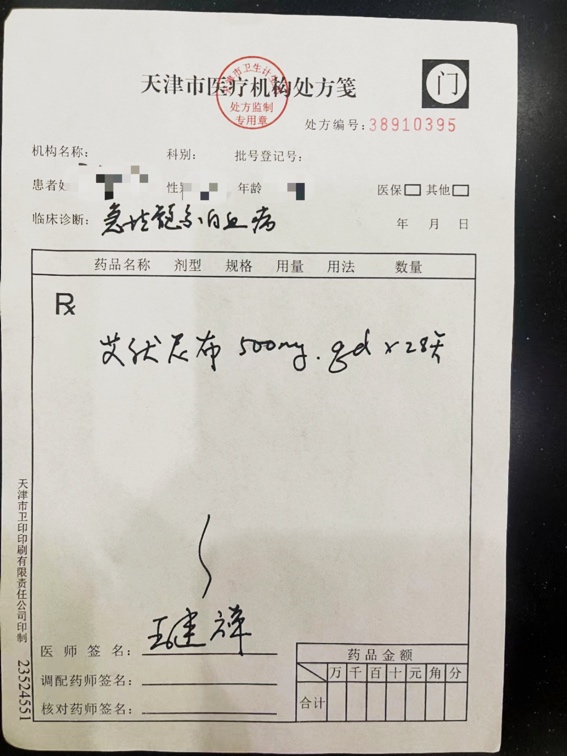 天津市医疗机构处方笺
门
处方监制
专用章
处方编号:38910395
机构名称: 科别: 批号登记号:
患者姓 性别 年龄 医保 其他
临床诊断: 急性髓系白血病 年 月 日
药品名称 剂型 规格 用量 用法 数量
Rx
艾伏尼布 500mg. qd × 28天
医师签名: 王建祥
调配药师签名:
核对药师签名:
药品金额
万 千 百 十 元 角 分
合计
天津市卫印印刷有限责任公司印制 23524551